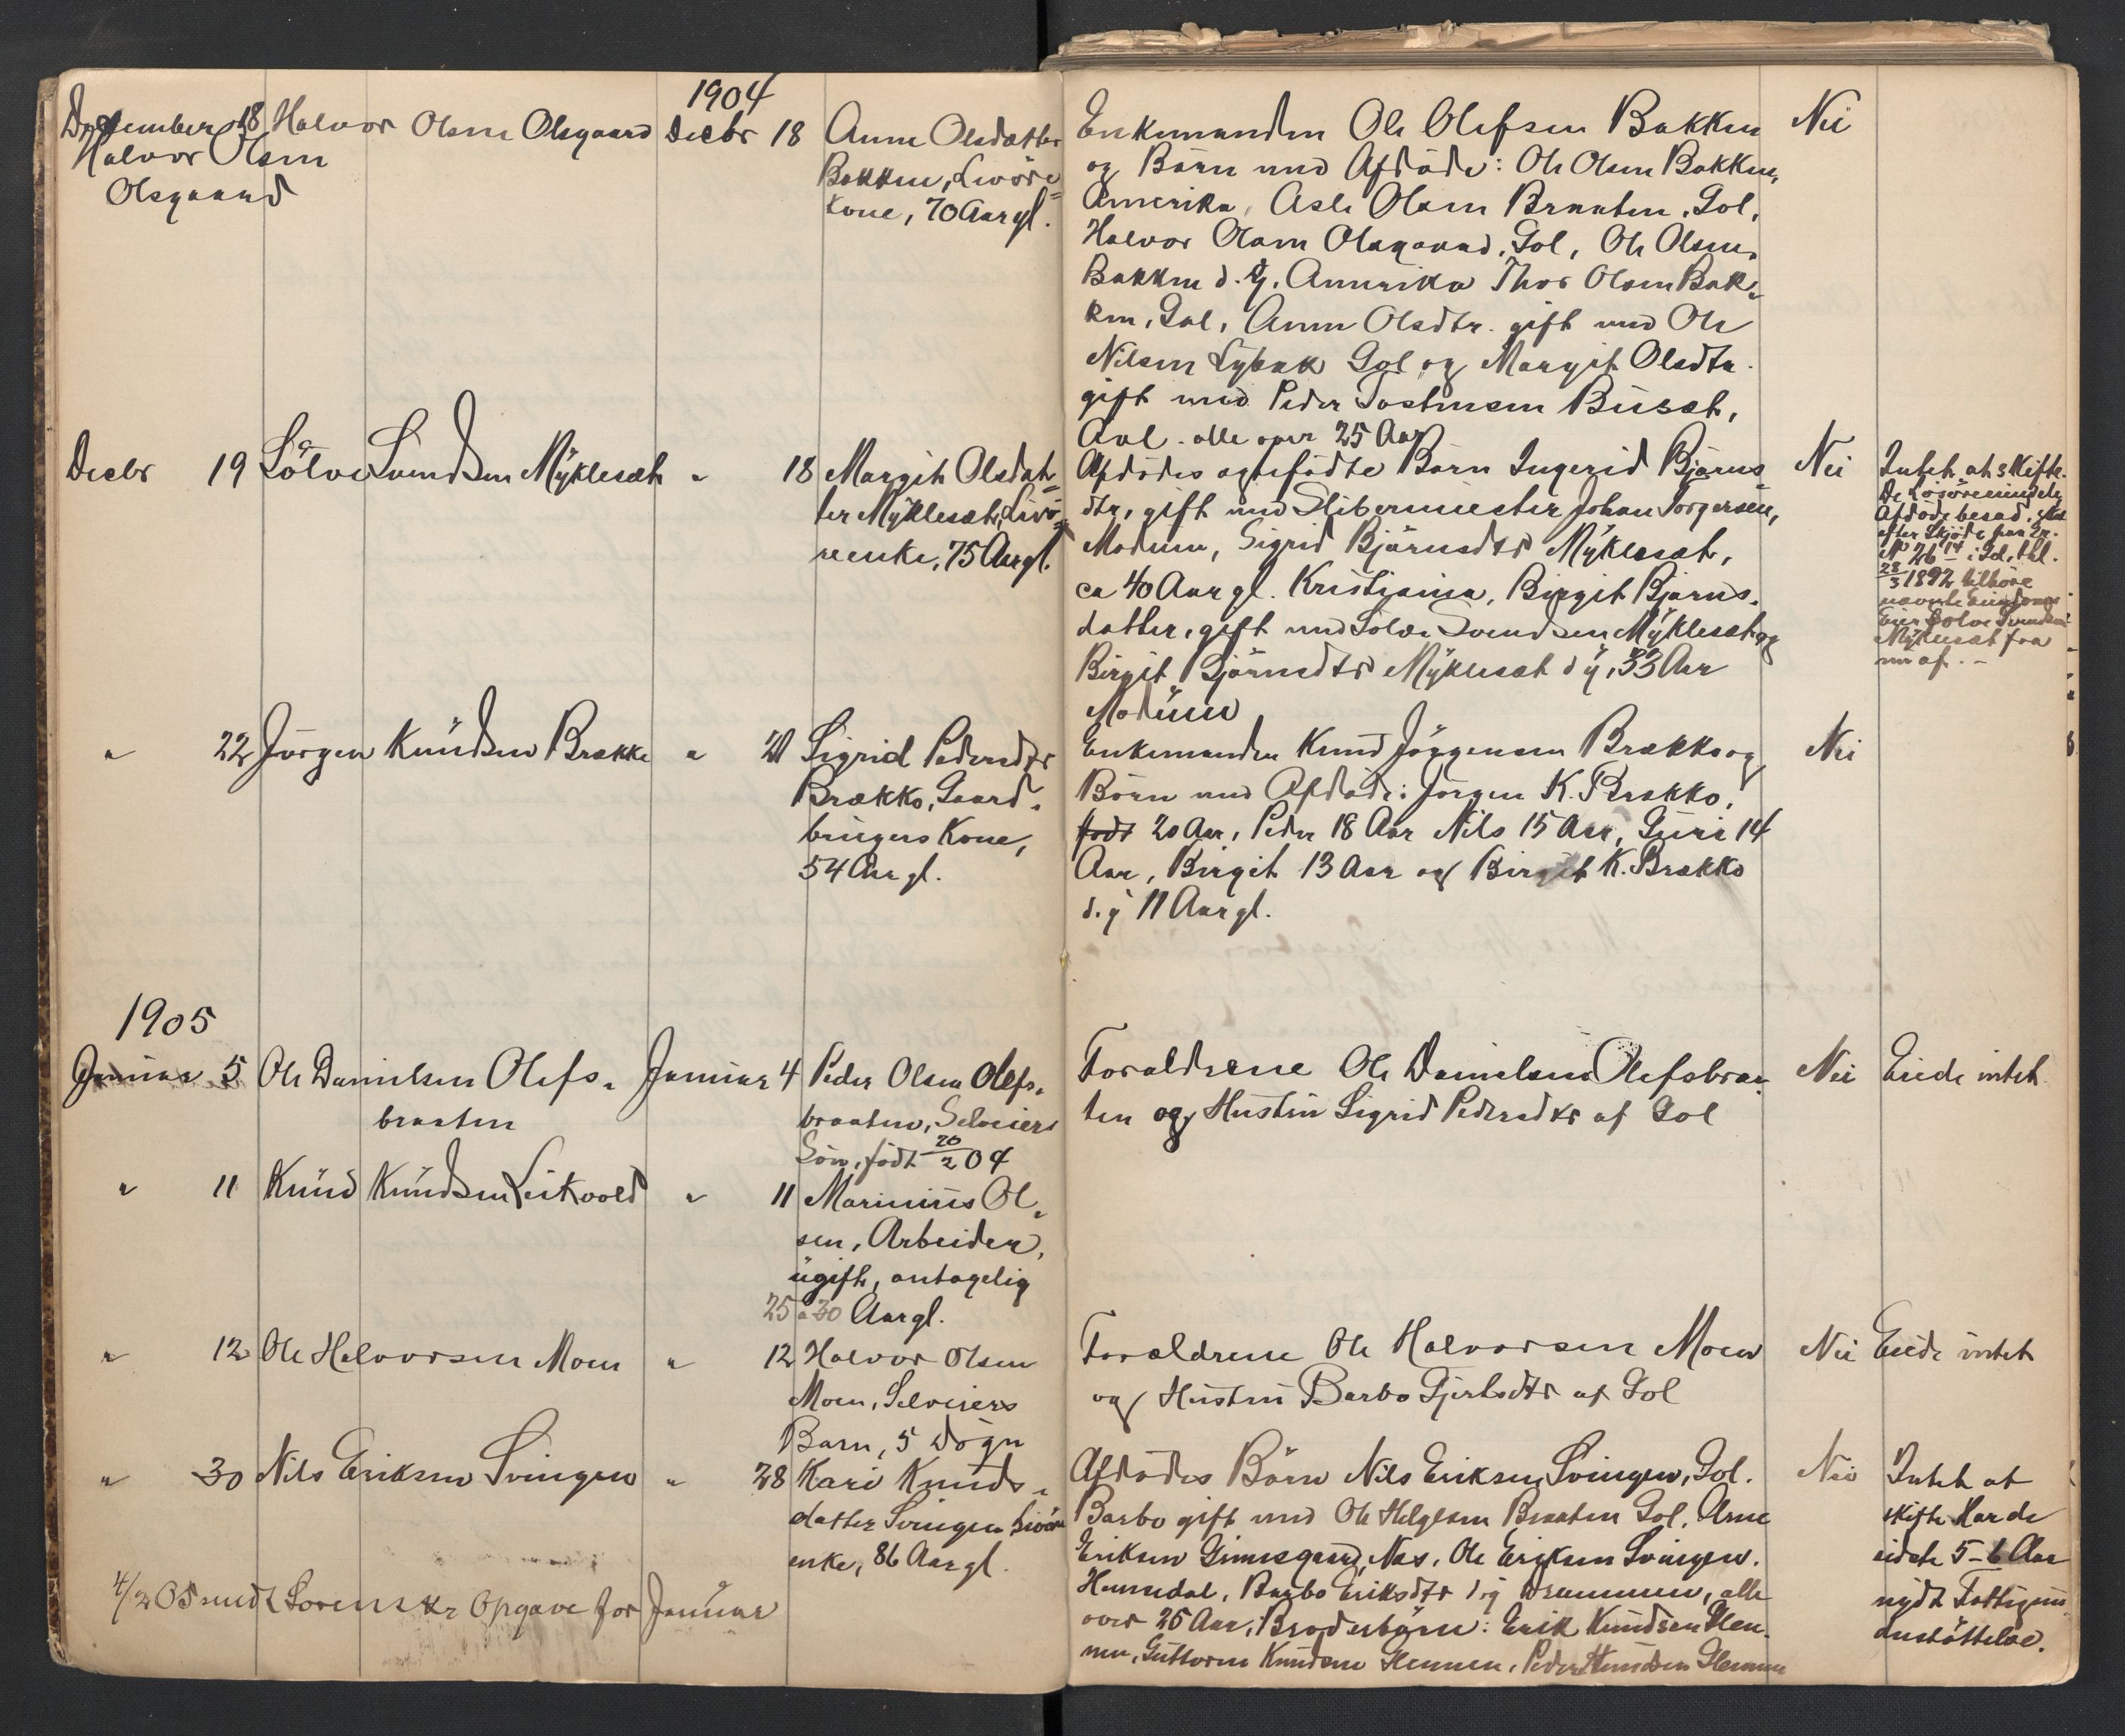 1904
Desember 18 Halvor Olsen Olsgaard Decbr 18 Anne Olsdatter
Halvor Olsen
Olsgaard
Bakken, Livöre-
kone, 70 Aar gl.
Enkemanden Ole Olefsen Bakken
og Börn med Afdöde: Ole Olsen Bakken,
Amerika, Asle Olsen Braaten, Gol,
Halvor Olsen Olsgaard, Gol, Ole Olsen
Bakken d. y. Amerika Thor Olsen Bak-
ken, Gol, Anne Olsdtr. gift med Ole
Nilsen Gol og Margit Olsdtr.
gift med Peder Tostensen Büsæt,
Aal. alle over 25 Aar
Nei
Decbr 19 Sölve Svendsen Myklesæt " 18 Margit Olsdat-
ter Myklesæt, Livö-
renke, 75 Aar gl.
Afdödes ægtefödte Börn Ingerid Björns-
dtr, gift med Slibermester Johan Torgersen,
Modum, Sigrid Björnsdtr Myklesæt,
ca 40 Aar gl. Kristiania, Birgit Björns-
datter, gift med Sölve Svendsen Myklesæt og
Birgit Björnsdtr Myklesæt d y, 33 Aar
Modüm
Nei
Intet at skifte.
De Lösöre
Afdöde besad,
efter Skjöde fra
No 26 14 i Gol, thl.
28/3 1892 tilhöre
nævnte Eiendoms
Eier Sölve Svendsen
Myklesæt fra
nu af. -
" 22 Jörgen Knüdsen Brække " 21 Sigrid Pedersdtr
Brækko, Gaard-
brügers Kone,
54 Aar gl.
Enkemanden Knud Jörgensen Brækko og
Börn med Afdöde: Jörgen K. Brækko,
födt 20 Aar, Peder 18 Aar Nils 15 Aar, Güri 14
Aar, Birgit 13 Aar og Birgit K. Brækko
d. y 11 Aar gl.
Nei
1905
Januar 5 Ole Danielsen Olefs- Januar 4 Peder Olsen Olefs-
braaten
braaten, Selveiers
Sön, födt 20/2 04
Forældrene Ole Danielsen Olefsbraa-
ten og Hustru Sigrid Pedersdtr af Gol
Nei Eiede intet
" 11 Knüd Knüdsen Leikvold " 11 Marinius Ol-
sen, Arbeider,
ügift, antagelig
25 a 30 Aar gl.
" 12 Ole Halvorsen Moen " 12 Halvor Olsen
Moen, Selveiers
Barn, 5 Dögn
Forældrene Ole Halvorsen Moen
og Hüstru Barbo Gjertsdtr af Gol
Nei Eiede intet
" 30 Nils Eriksen Svingen " 28 Kari Knuds-
datter Svingen Livöre
enke, 86 Aar gl.
Afdödes Börn Nils Eriksen Svingen, Gol.
Barbo gift med Ole Helgesen Braaten Gol, Arne
Eriksen Næs, Ole Eriksen Svingen.
Hemsedal, Barbo Eriksdtr d y Drammen, alle
over 25 Aar, Broderbörn: Erik Knudsen Slen-
nen, Guttorm Knudsen Slennen, Peder Knudsen Slennen
Nei
Intet at
skifte Havde
sidste 5-6 Aar
nydt Fattigun-
derstöttelse.
4/2 05 sendt Sorenskr Opgave for Januar